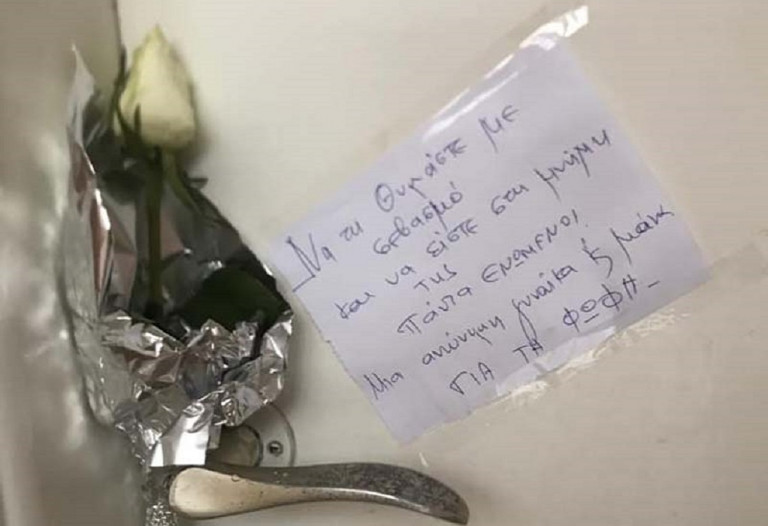 Να τη θυμάστε με
σεβασμό
και να είστε στη μνήμη
της
πάντα ΕΝΩΜΕΝΟΙ
Μια ανώνυμη γυναίκα & μάνα
ΓΙΑ ΤΗ ΦΩΦΗ-